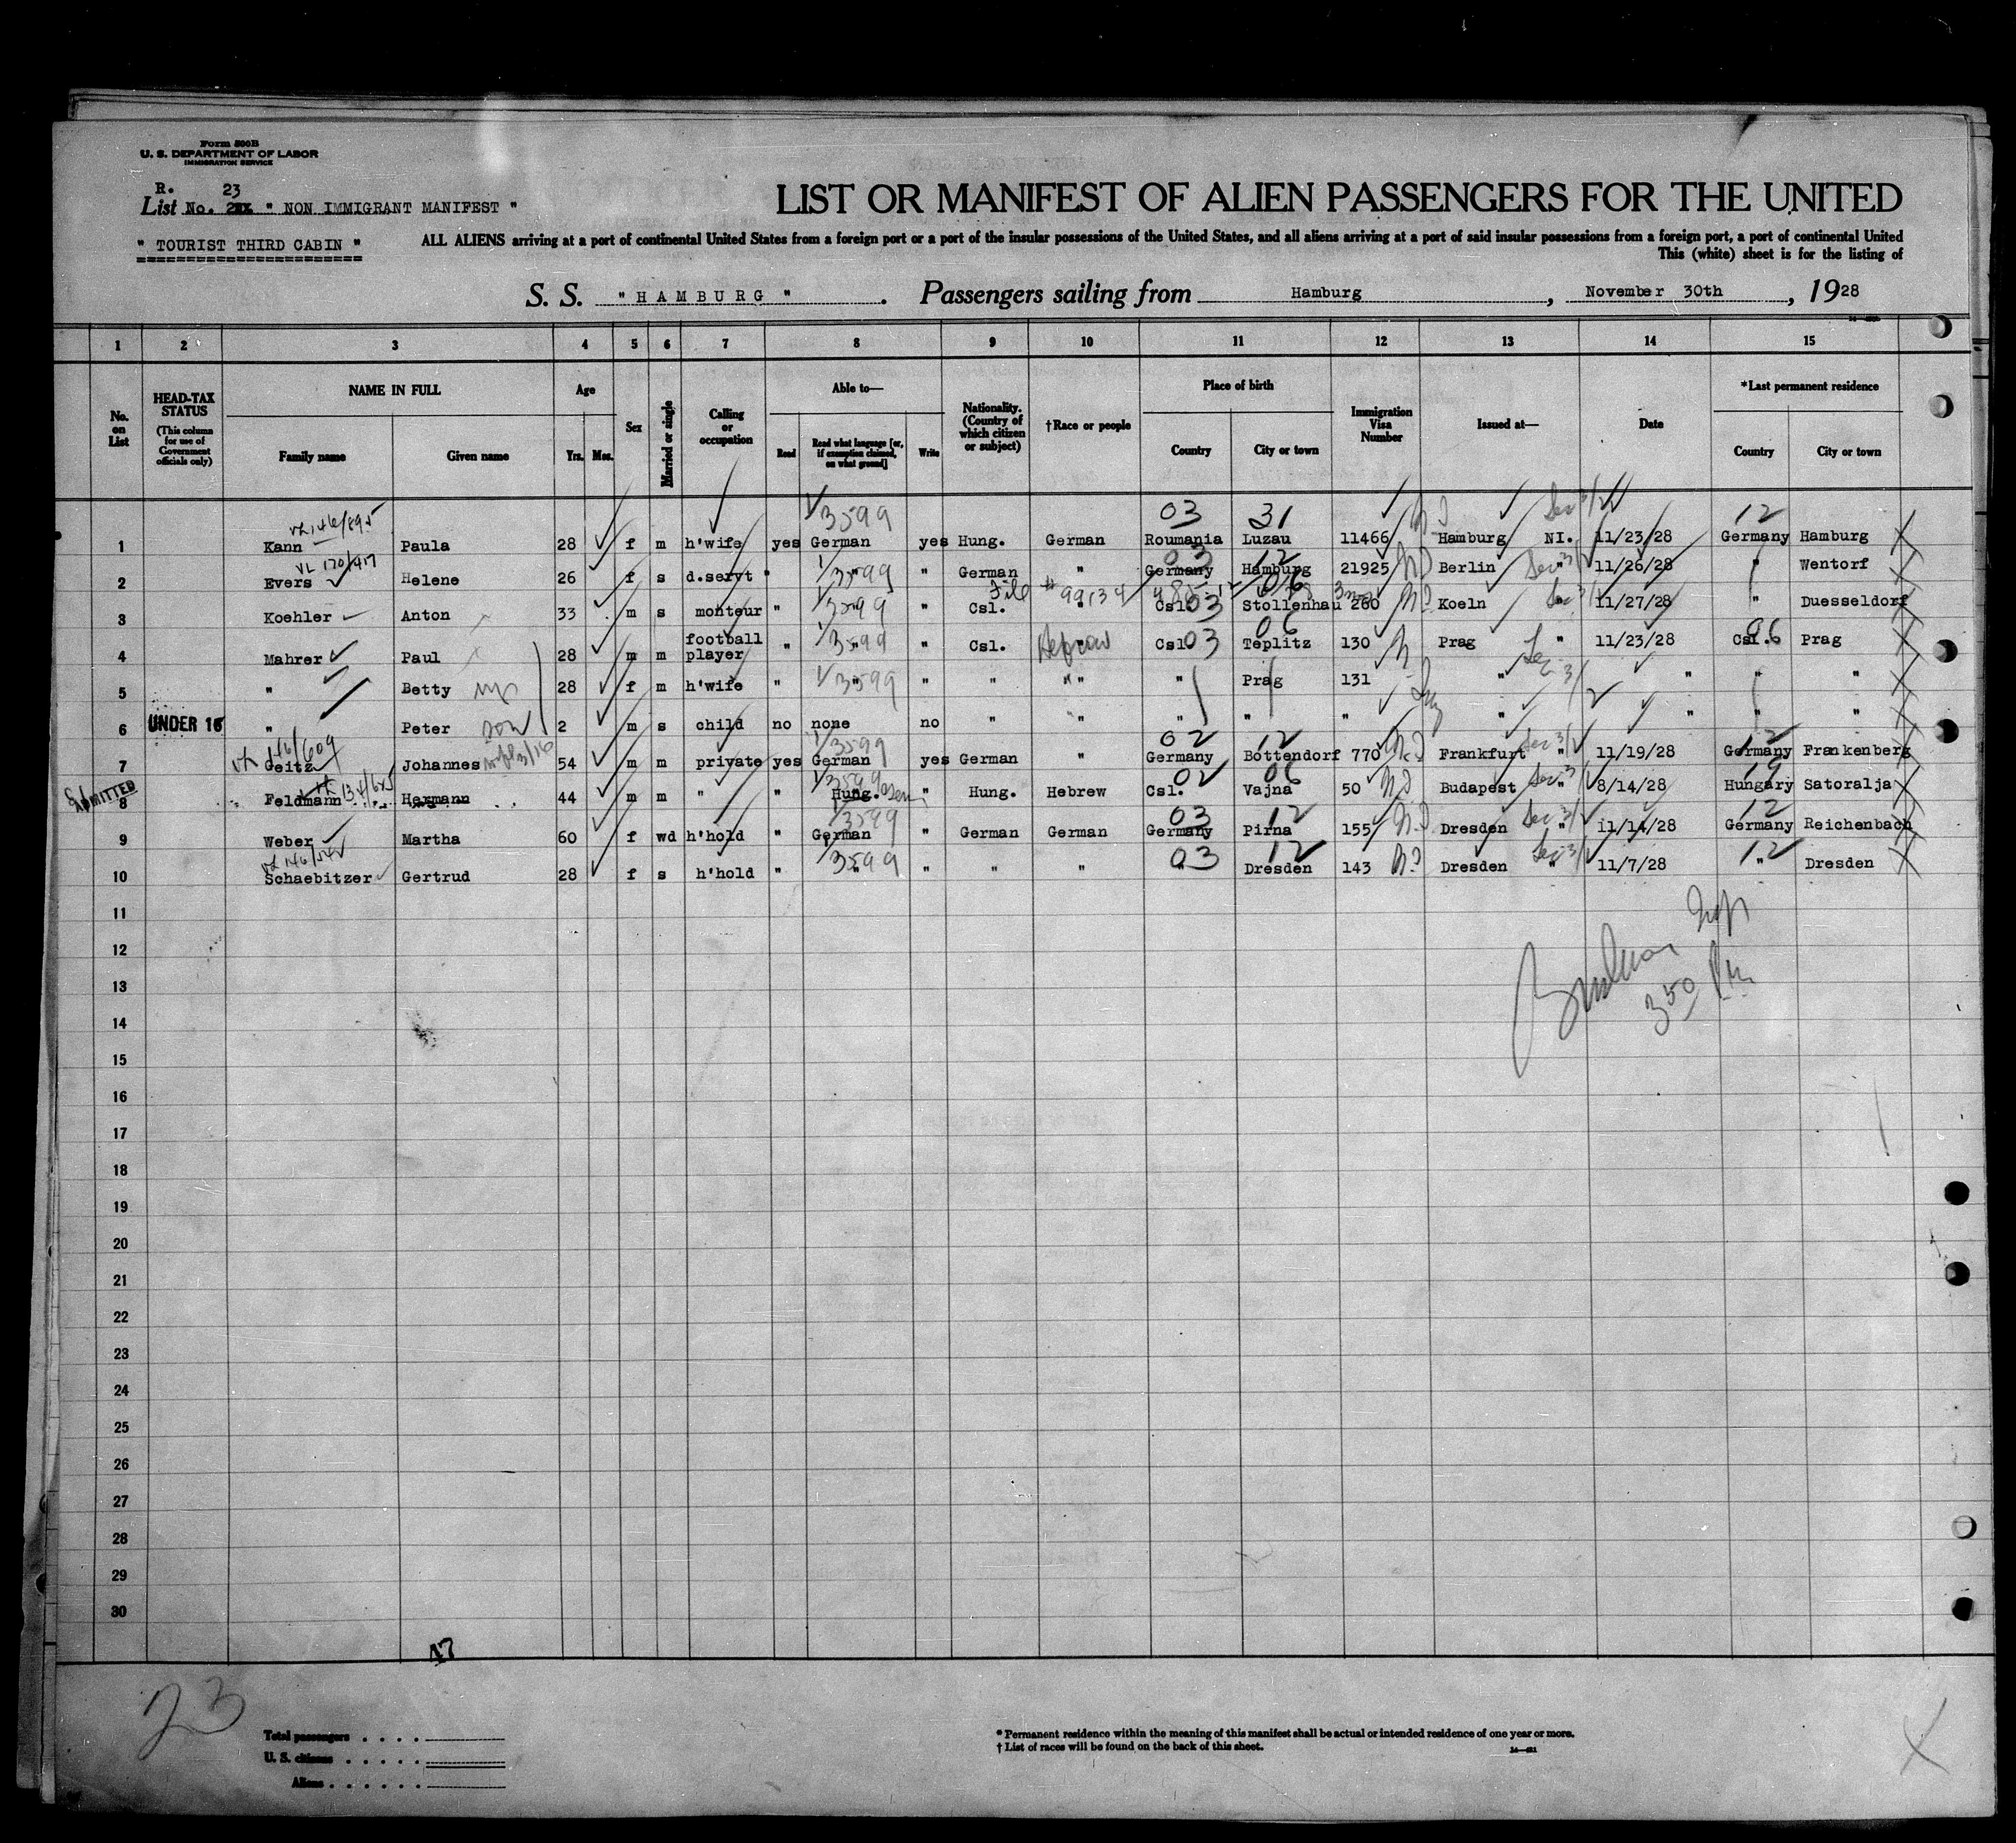 Form 500B
U. S. DEPARTMENT OF LABOR
IMMIGRATION SERVICE
R. 23
List No. " NON IMMIGRANT MANIFEST "
LIST OR MANIFEST OF ALIEN PASSENGERS FOR THE UNITED
" TOURIST THIRD CABIN "
ALL ALIENS arriving at a port of continental United States from a foreign port or a port of the insular possessions of the United States, and all aliens arriving at a port of said insular possessions from a foreign port, a port of continental United
This (white) sheet is for the listing of
S. S. " H A M B U R G " . Passengers sailing from Hamburg , November 30th , 1928
1 2 3 4 5 6 7 8 9 10 11 12 13 14 15
No. on List
HEAD-TAX STATUS (This column for use of Government officials only)
NAME IN FULL
Family name Given name
Age
Yrs. Mos.
Sex
Married or single
Calling or occupation
Able to—
Read Read what language [or, if exemption claimed, on what ground] Write
Nationality. (Country of which citizen or subject)
†Race or people
Place of birth
Country City or town
Immigration Visa Number
Issued at—
Date
*Last permanent residence
Country City or town
3599 03 31 12
1 Kann Paula 28 f m h'wife yes German yes Hung. German Roumania Luzau 11466 Hamburg NI. 11/23/28 Germany Hamburg
3599 03 12
2 Evers Helene 26 f s d.servt " " " German " Germany Hamburg 21925 Berlin " 11/26/28 " Wentorf
File # 99134/488
3599 03 06
3 Koehler Anton 33 m s monteur " " " Csl. Csl. Stollenhau 260 Koeln " 11/27/28 " Duesseldorf
3599 03 06 06
4 Mahrer Paul 28 m m football player " " " Csl. Hebrew Csl. Teplitz 130 Prag " 11/23/28 Csl. Prag
3599
5 " Betty 28 f m h'wife " " " " " Prag 131 " " " "
6 UNDER 16 " Peter son 2 m s child no none no " " " " " " " " "
3599 02 12 12
7 Geitz Johannes 54 m m private yes German yes German " Germany Bottendorf 770 Frankfurt " 11/19/28 Germany Frankenberg
3599 02 06 19
ADMITTED
8 Feldmann Hermann 44 m m " " Hung. " Hung. Hebrew Csl. Vajna 50 Budapest " 8/14/28 Hungary Satoralja
3599 03 12 12
9 Weber Martha 60 f wd h'hold " German " German German Germany Pirna 155 Dresden " 11/14/28 Germany Reichenbach
3599 03 12 12
10 Schaebitzer Gertrud 28 f s h'hold " " " " " " Dresden 143 Dresden " 11/7/28 " Dresden
11
12
13
350 P.M.
14
15
16
17
18
19
20
21
22
23
24
25
26
27
28
29
30
17
23
Total passengers
U. S. citizens
Aliens
* Permanent residence within the meaning of this manifest shall be actual or intended residence of one year or more.
† List of races will be found on the back of this sheet.